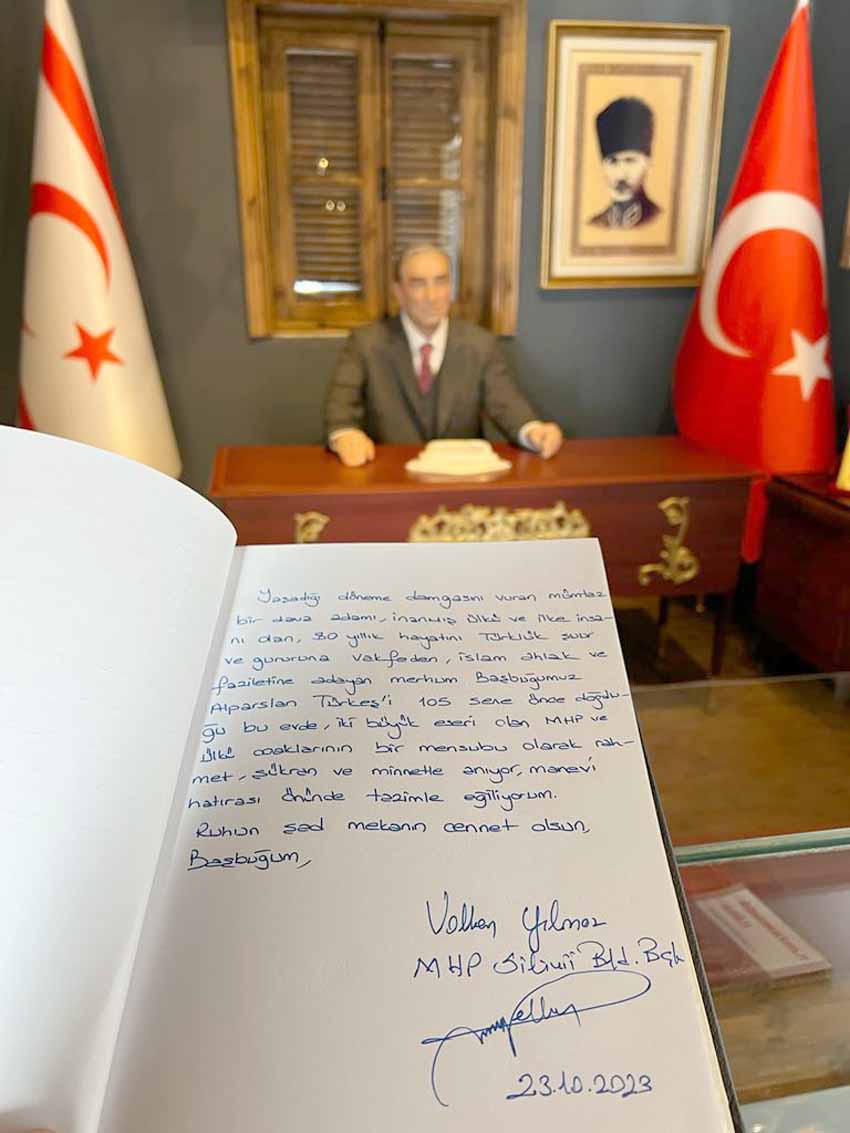 Yaşadığı döneme damgasını vuran mümtaz
bir dava adamı, inanmış ülkü ve ilke insa-
nı olan, 80 yıllık hayatını Türklük şuur
ve gururuna vakfeden, islam ahlak ve
faziletine adayan merhum Başbuğumuz
Alparslan Türkeş'i 105 sene önce doğdu-
ğu bu evde, iki büyük eseri olan MHP ve
Ülkü ocaklarının bir mensubu olarak rah-
met, şükran ve minnetle anıyor, manevi
hatırası önünde tazimle eğiliyorum.
Ruhun şad mekanın cennet olsun,
Başbuğum,
Volkan Yılmaz
MHP Silivri Bld. Bşk
23.10.2023